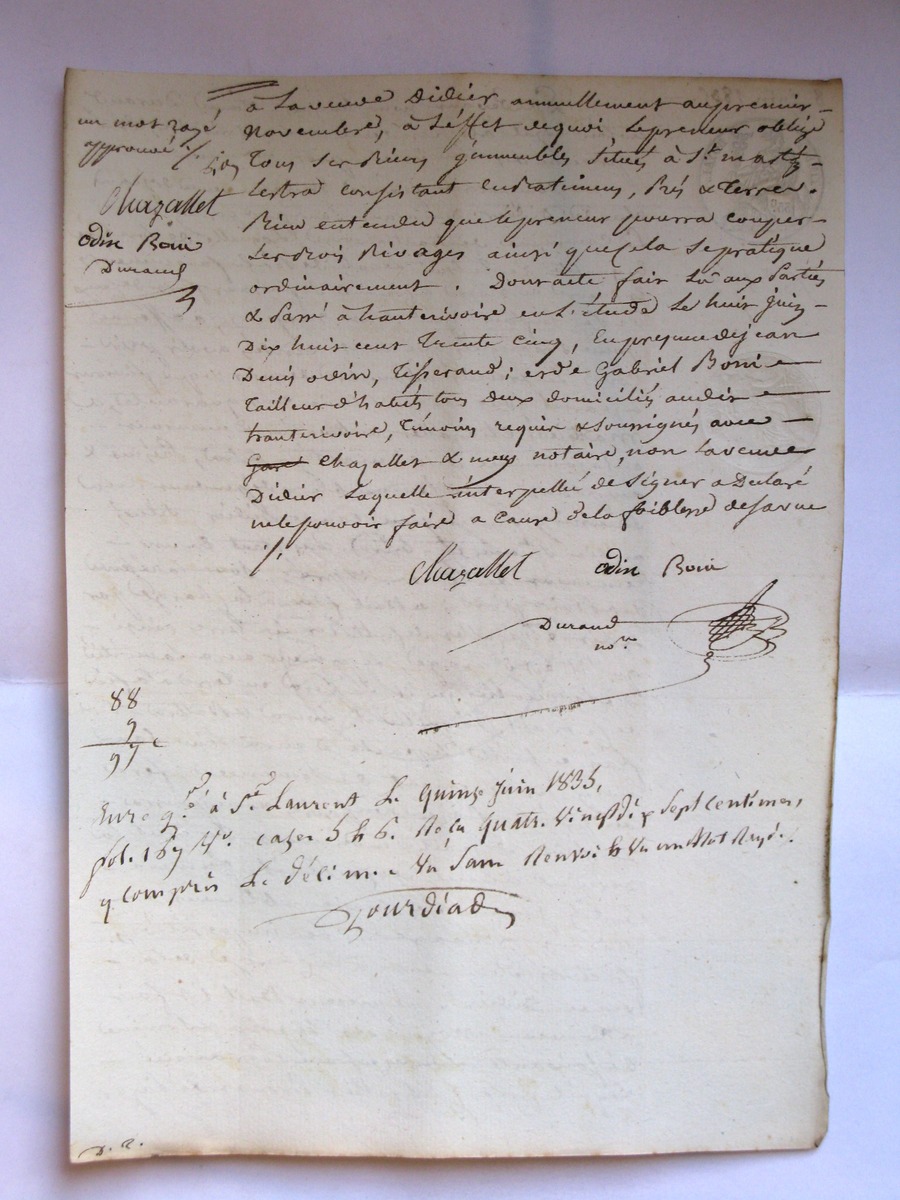 un mot rayé
approuvé ·/.
Chazallet
odin Boni
Durand
à La veuve Didier annuellement au premier
Novembre, à L'éffet de quoi Le preneur oblige
Tous Ses Biens Situés à St. Martin
Lestra Consistant en Batimens, Prés & Terres.
Bien entendu que Le preneur pourra couper
Les Bois Rivages ainsi que Cela Se pratique
ordinairement. Dont acte fait Lû aux Parties
& Passé à hauterivoire en L'étude Le huit Juin
Dix huit cent Trente Cinq, En presence de jean
Denis odin, Tisserand; et de Gabriel Boni
Tailleur d'habits tous deux domiciliés audit
hauterivoire, Témoins requis & soussignés avec
Chazallet & nous notaire, non La veuve
Didier Laquelle interpellée de Signer a Déclaré
ne le pouvoir faire a Cause de la foiblesse de sa vue
·/.
Chazallet odin Boni
Durand
nore
88
9
97 c
Enregé à St. Laurent Le quinze Juin 1835,
fol. 167 Vo. cases 5 & 6. Reçu quatre Vingt dix Sept centimes,
y compris Le décime Sans Renvoi & un Mot Rayé.
Jourdiad
D. R.